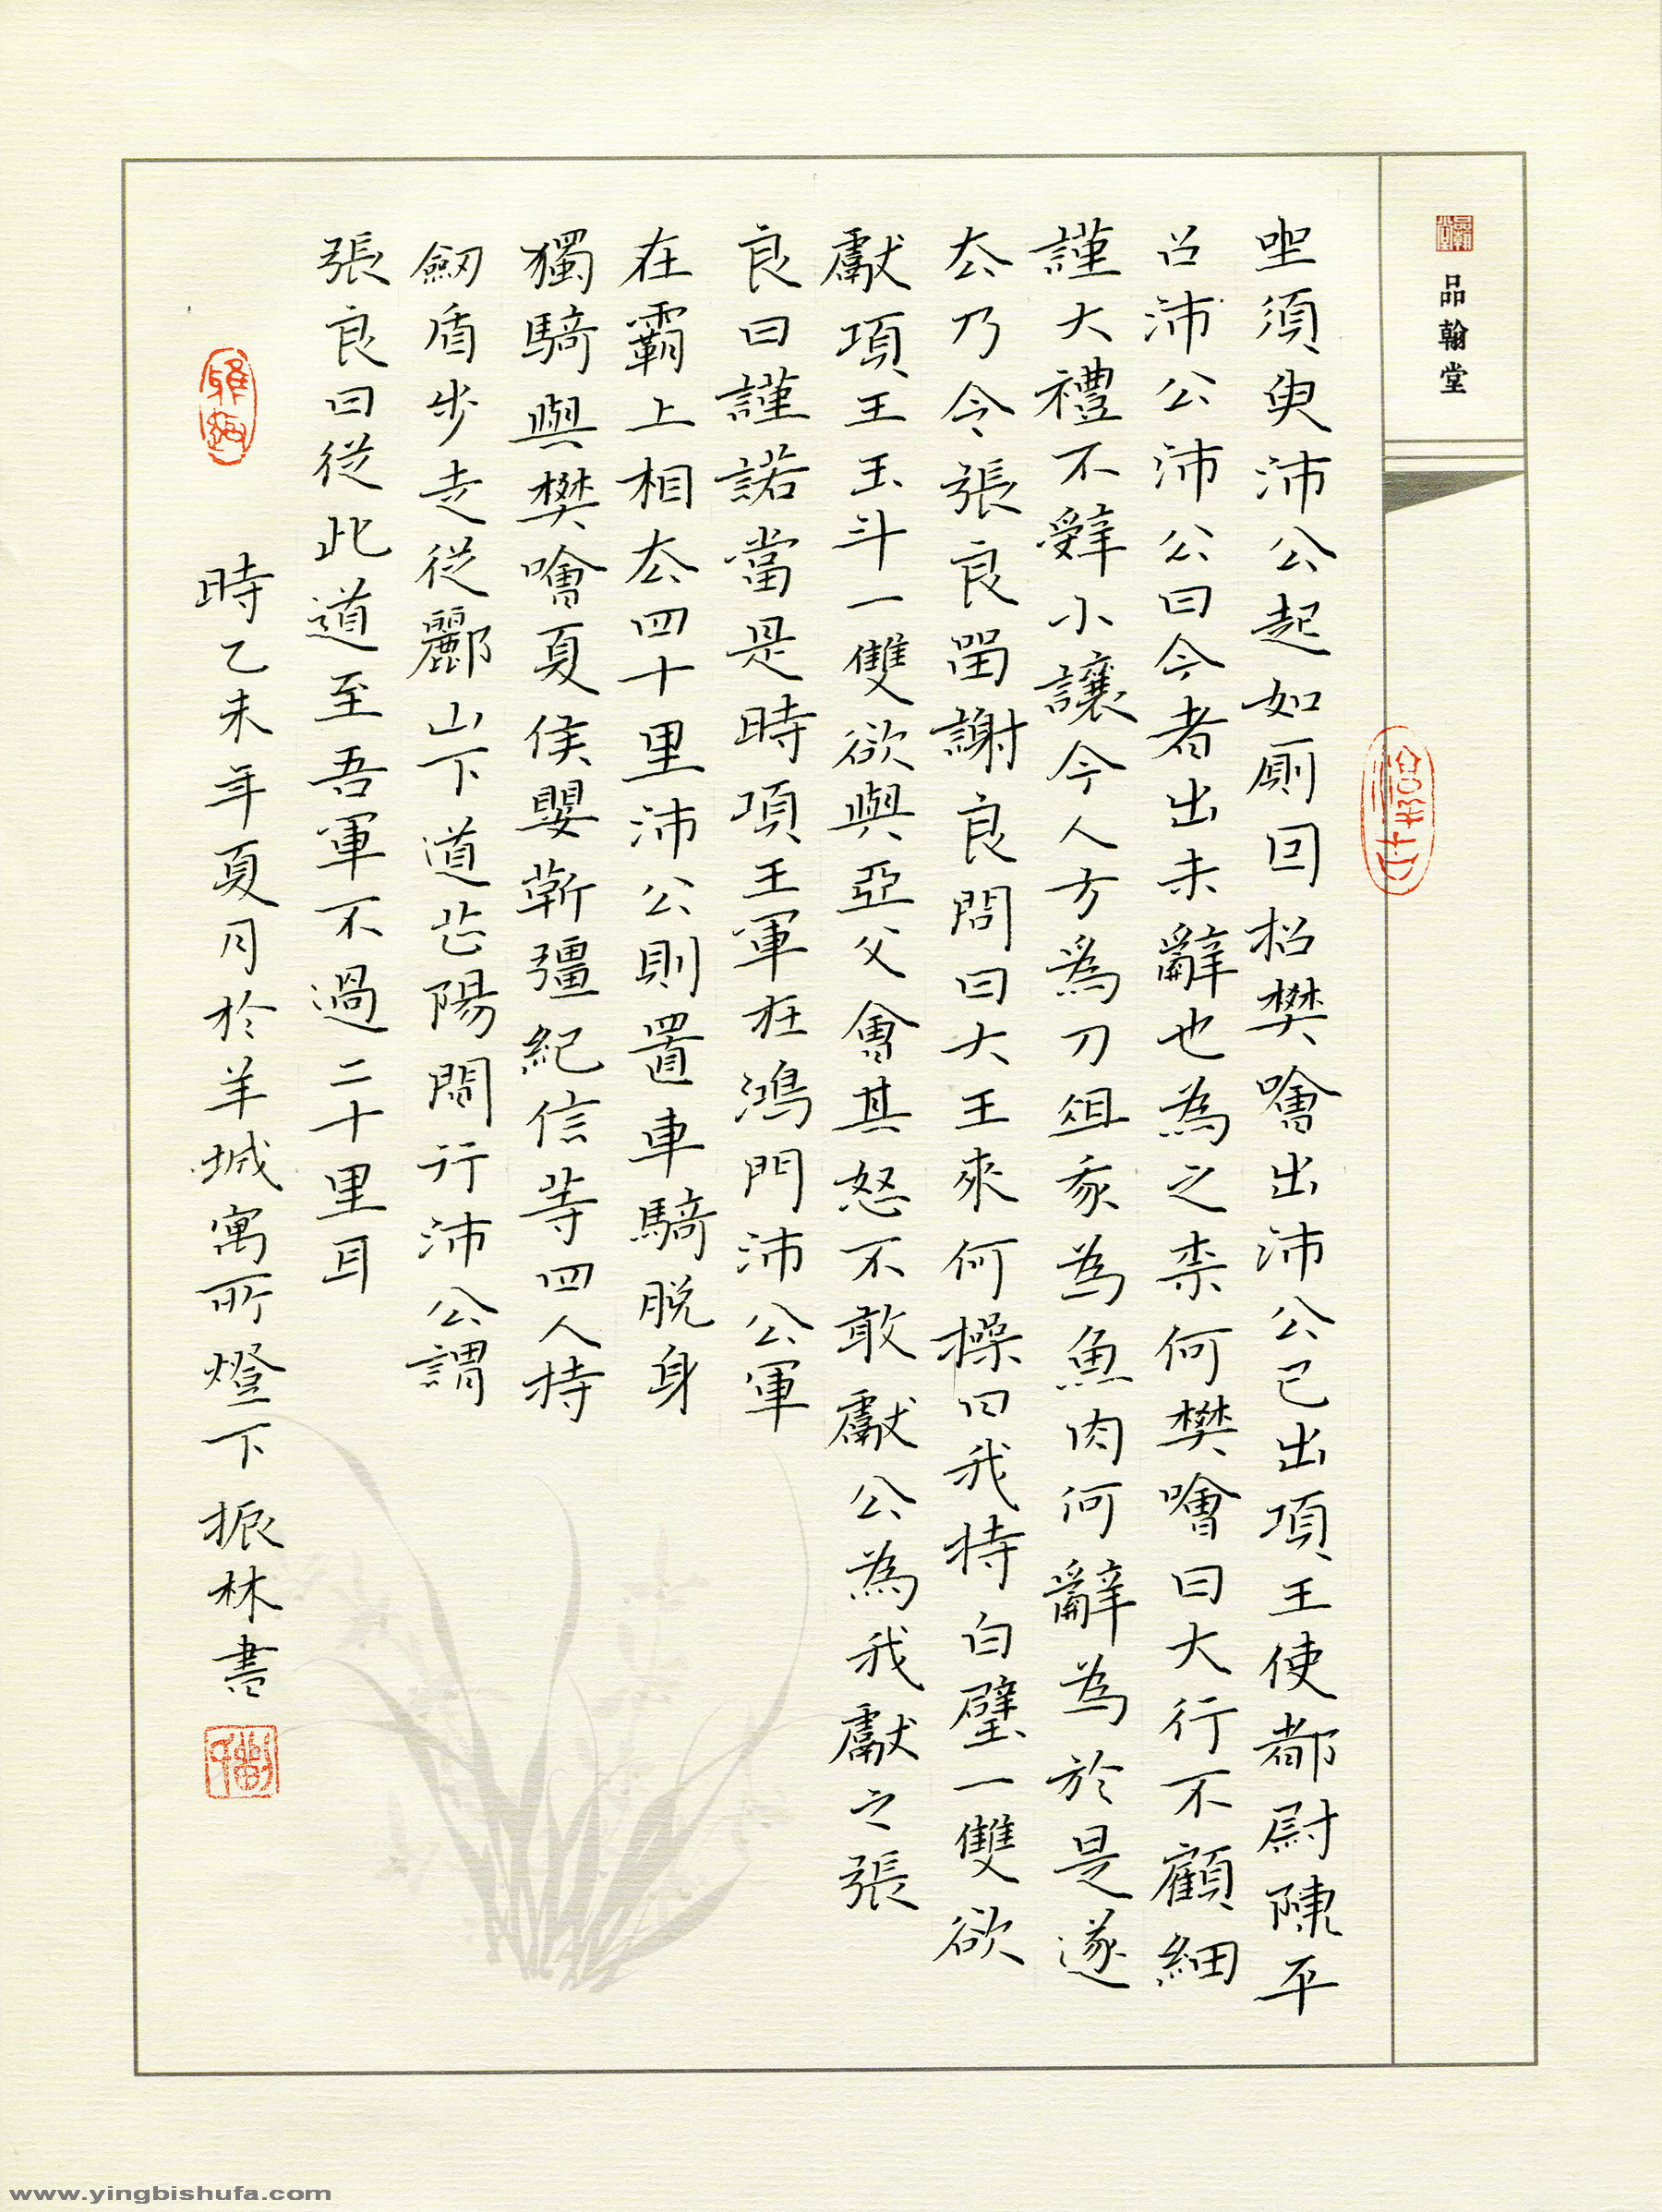 品翰堂
坐須臾沛公起如廁因招樊噲出沛公已出項王使都尉陳平
召沛公沛公曰今者出未辭也為之柰何樊噲曰大行不顧細
謹大禮不辤小讓今人方爲刀俎我為魚肉何辭為於是遂
去乃令張良留謝良問曰大王來何操曰我持白璧一雙欲
獻項王玉斗一雙欲與亞父會其怒不敢獻公為我獻之張
良曰謹諾當是時項王軍在鴻門沛公軍
在霸上相去四十里沛公則置車騎脫身
獨騎與樊噲夏侯嬰靳彊紀信等四人持
劒盾步走從酈山下道芷陽間行沛公謂
張良曰從此道至吾軍不過二十里耳
時乙未年夏月於羊城寓所燈下振林書
www.yingbishufa.com